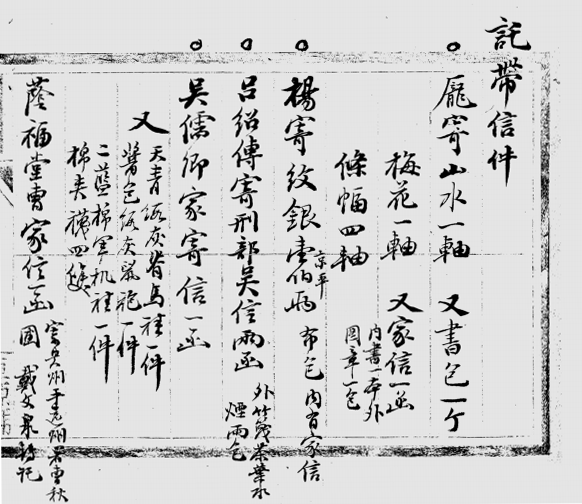 託帶信件
龐寄山水一軸 又書包一个
梅花一軸 又家信一函
內書一本外
圖章一包
條幅四軸
楊寄紋銀壹伯兩 布包內有家信
京平
呂紹傳寄刑部吳信兩函
外竹箋茶葉水
煙兩包
吳儒卿家寄信一函
又
天青
灰脊馬褂一件
醬色
灰鼠袍一件
二藍棉軍机褂一件
棉夹襪四雙
蔭福堂曹家信一函